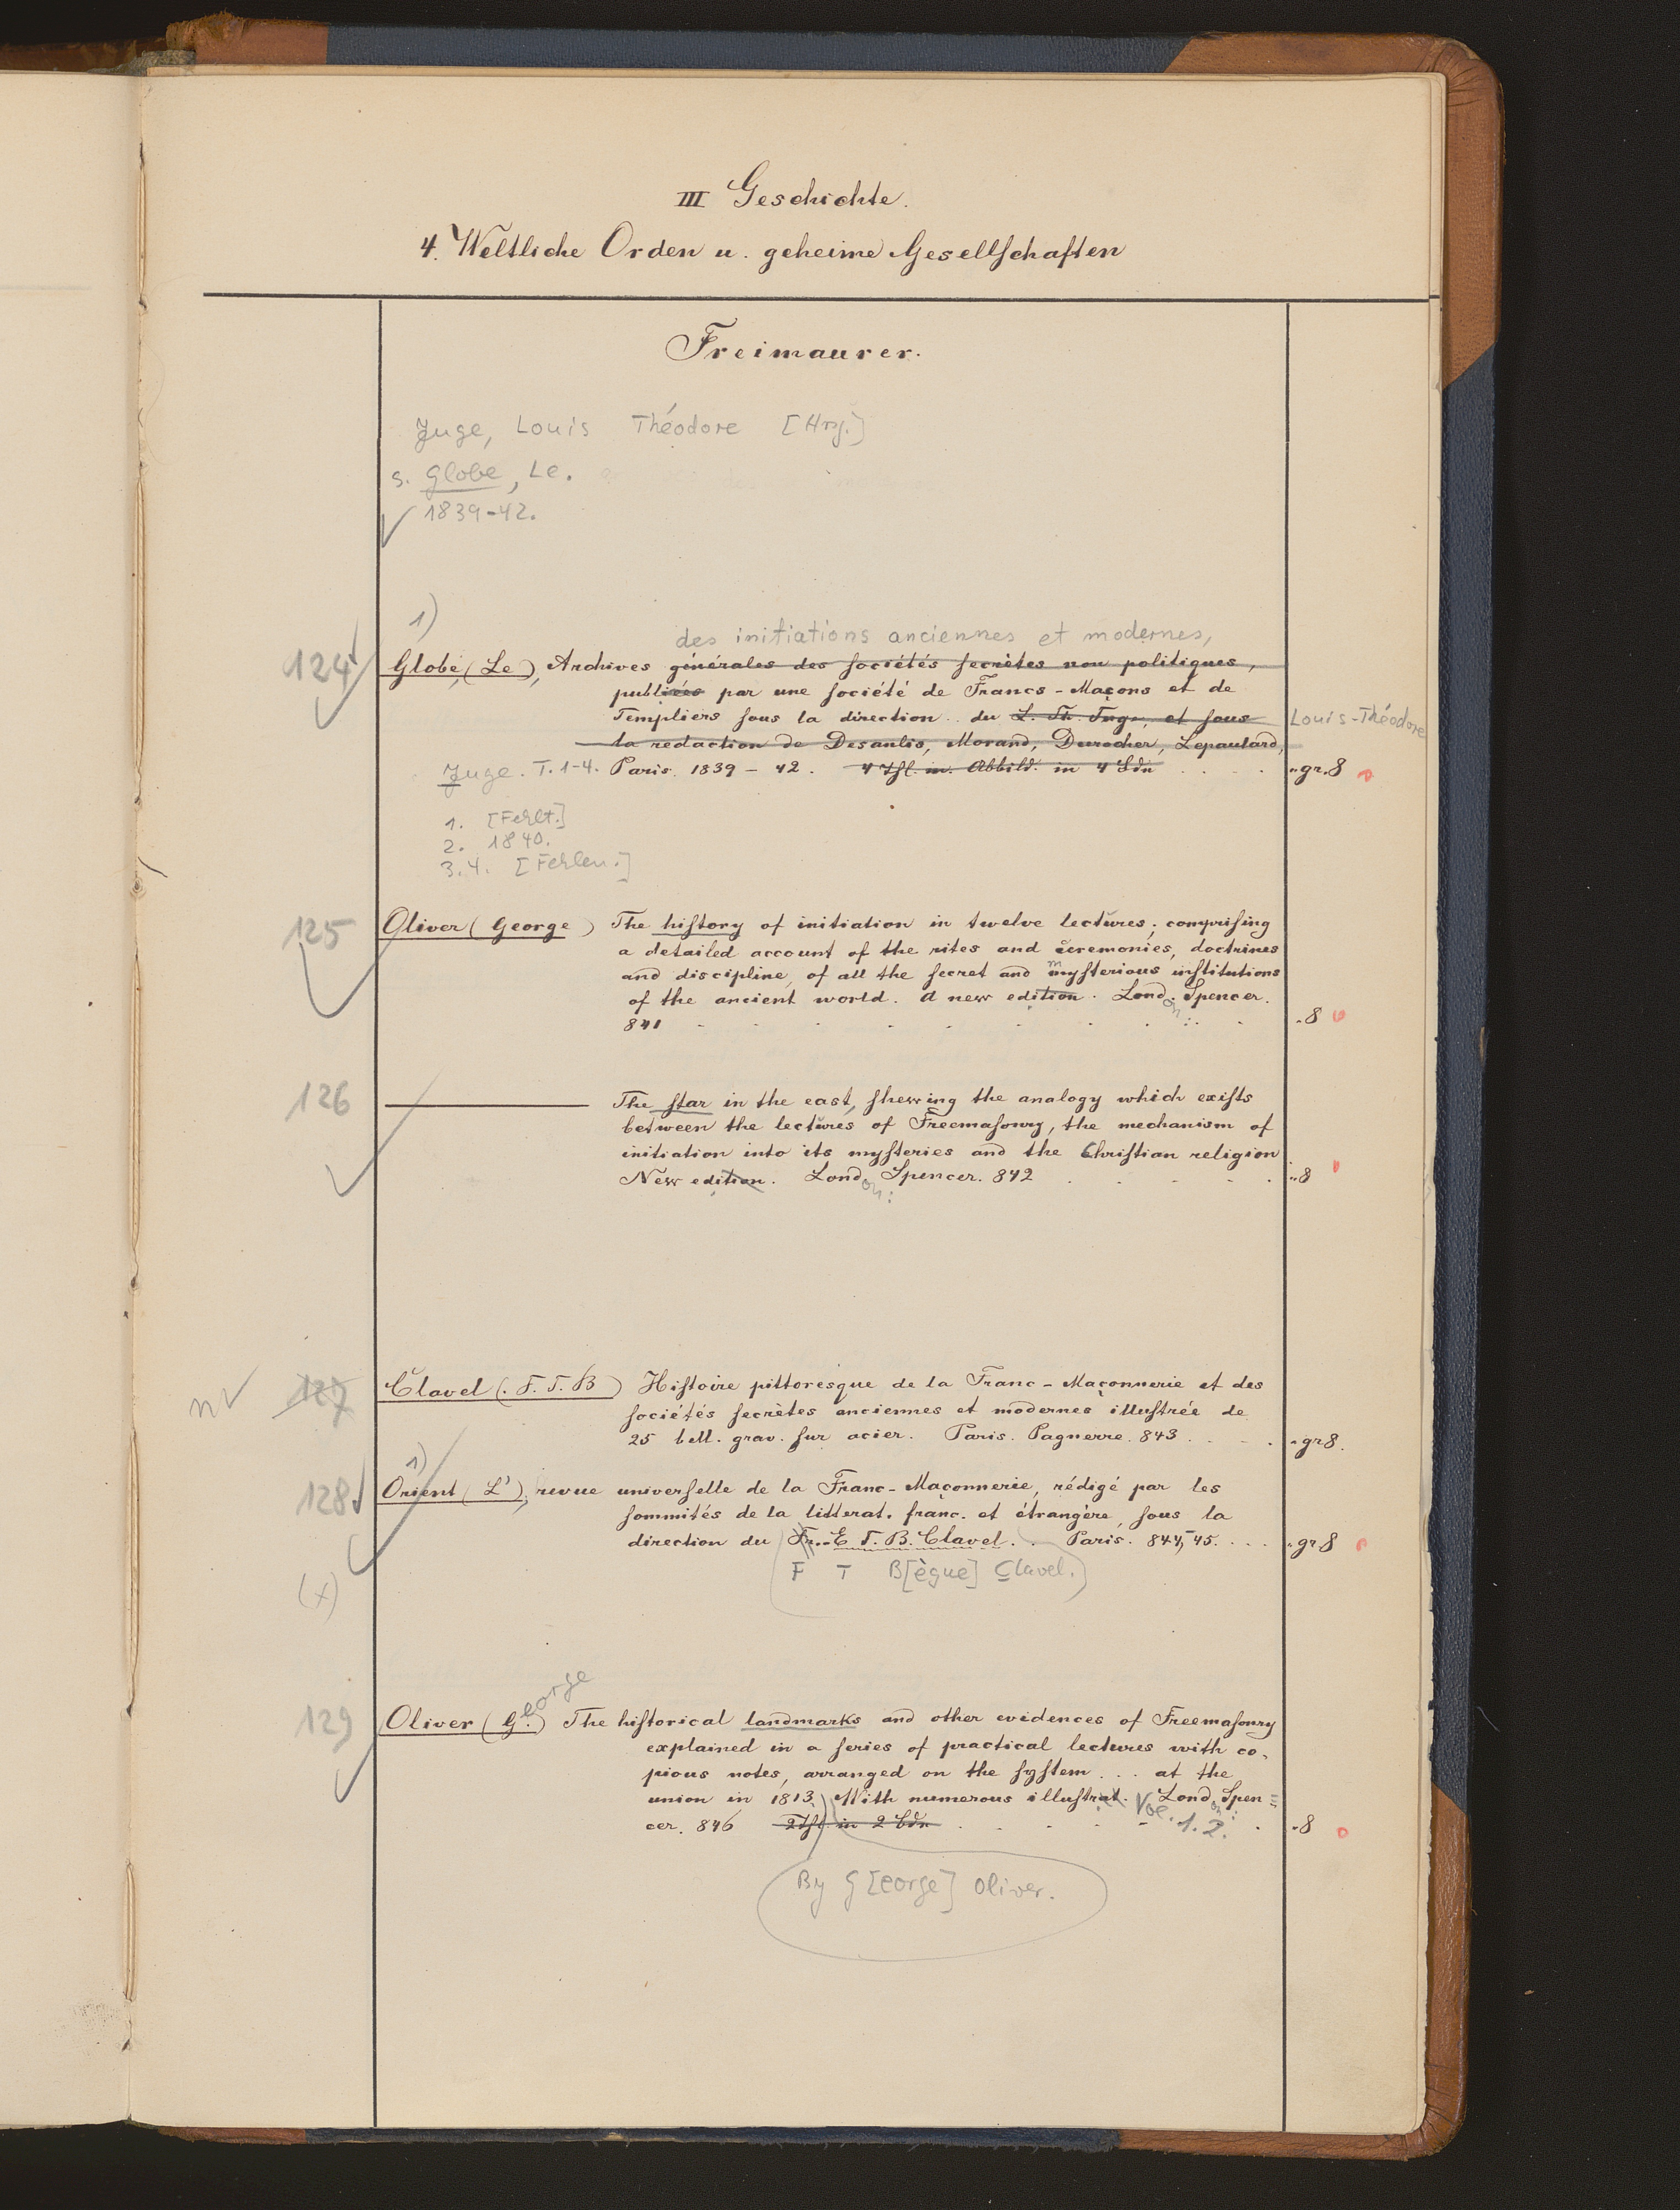 III Geschichte.
4. Weltliche Orden u. geheime Gesellschaften
Freimaurer.
Juge, Louis Théodore [Hrsg.]
s. Globe, Le.
1839-42.
1)
des initiations anciennes et modernes,
124 Globe, (Le), Archives générales des sociétés secrètes non politiques,
publiées par une société de Francs-Maçons et de
Templiers sous la direction du L. Th. Juge, et sous Louis-Théodore
la redaction de Desanlis, Morand, Durocher, Lepautard,
Juge. T. 1-4. Paris. 1839-42. 4 Thl. m. Abbild. in 4 Bdn . . . "gr. 8
1. [Fehlt.]
2. 1840.
3.4. [Fehlen.]
125 Oliver (George) The history of initiation in twelve lectures; comprising
a detailed account of the rites and ceremonies, doctrines
and discipline, of all the secret and mysterious institutions
of the ancient world. A new edition. London: Spencer.
841 . . . . . . . . . "8
126 ——— The star in the east, shewing the analogy which exists
between the lectures of Freemasonry, the mechanism of
initiation into its mysteries and the Christian religion
New edition. London: Spencer. 842 . . . . . "8
n 127 Clavel (F. T. B) Histoire pittoresque de la Franc-Maçonnerie et des
sociétés secrètes anciennes et modernes illustrée de
25 bell. grav. sur acier. Paris. Pagnerre. 843 . . . . "gr 8.
1)
128 Orient (L'), revue universelle de la Franc-Maçonnerie, rédigé par les
sommités de la litterat. franc. et étrangère, sous la
direction du Fr.-E T. B. Clavel. . Paris. 844,-45. . . . "gr 8
F T B[ègue] Clavel.)
(x)
129 Oliver (George) The historical landmarks and other evidences of Freemasonry
explained in a series of practical lectures with co-
pious notes, arranged on the system . . . at the
union in 1813. With numerous illustrat. London: Spen=
cer. 846 2 Thl in 2 Bdn . . . Vol. 1. 2. . "8
By G[eorge] Oliver.